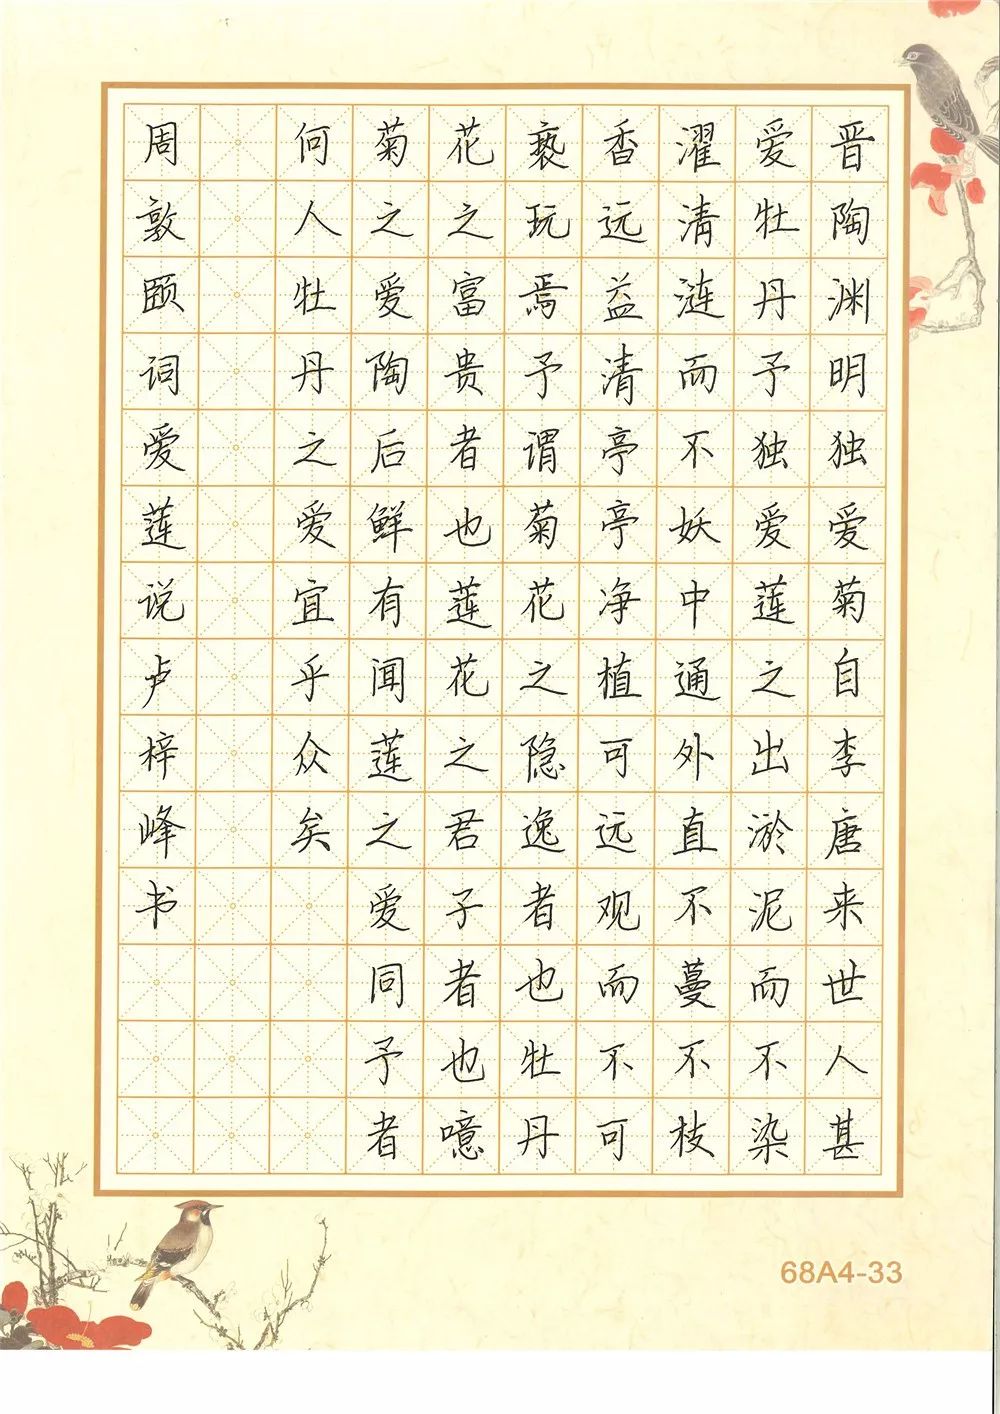 晋陶渊明独爱菊自李唐来世人甚
爱牡丹予独爱莲之出淤泥而不染
濯清涟而不妖中通外直不蔓不枝
香远益清亭亭净植可远观而不可
亵玩焉予谓菊花之隐逸者也牡丹
花之富贵者也莲花之君子者也噫
菊之爱陶后鲜有闻莲之爱同予者
何人牡丹之爱宜乎众矣
周敦颐词爱莲说卢梓峰书
68A4-33